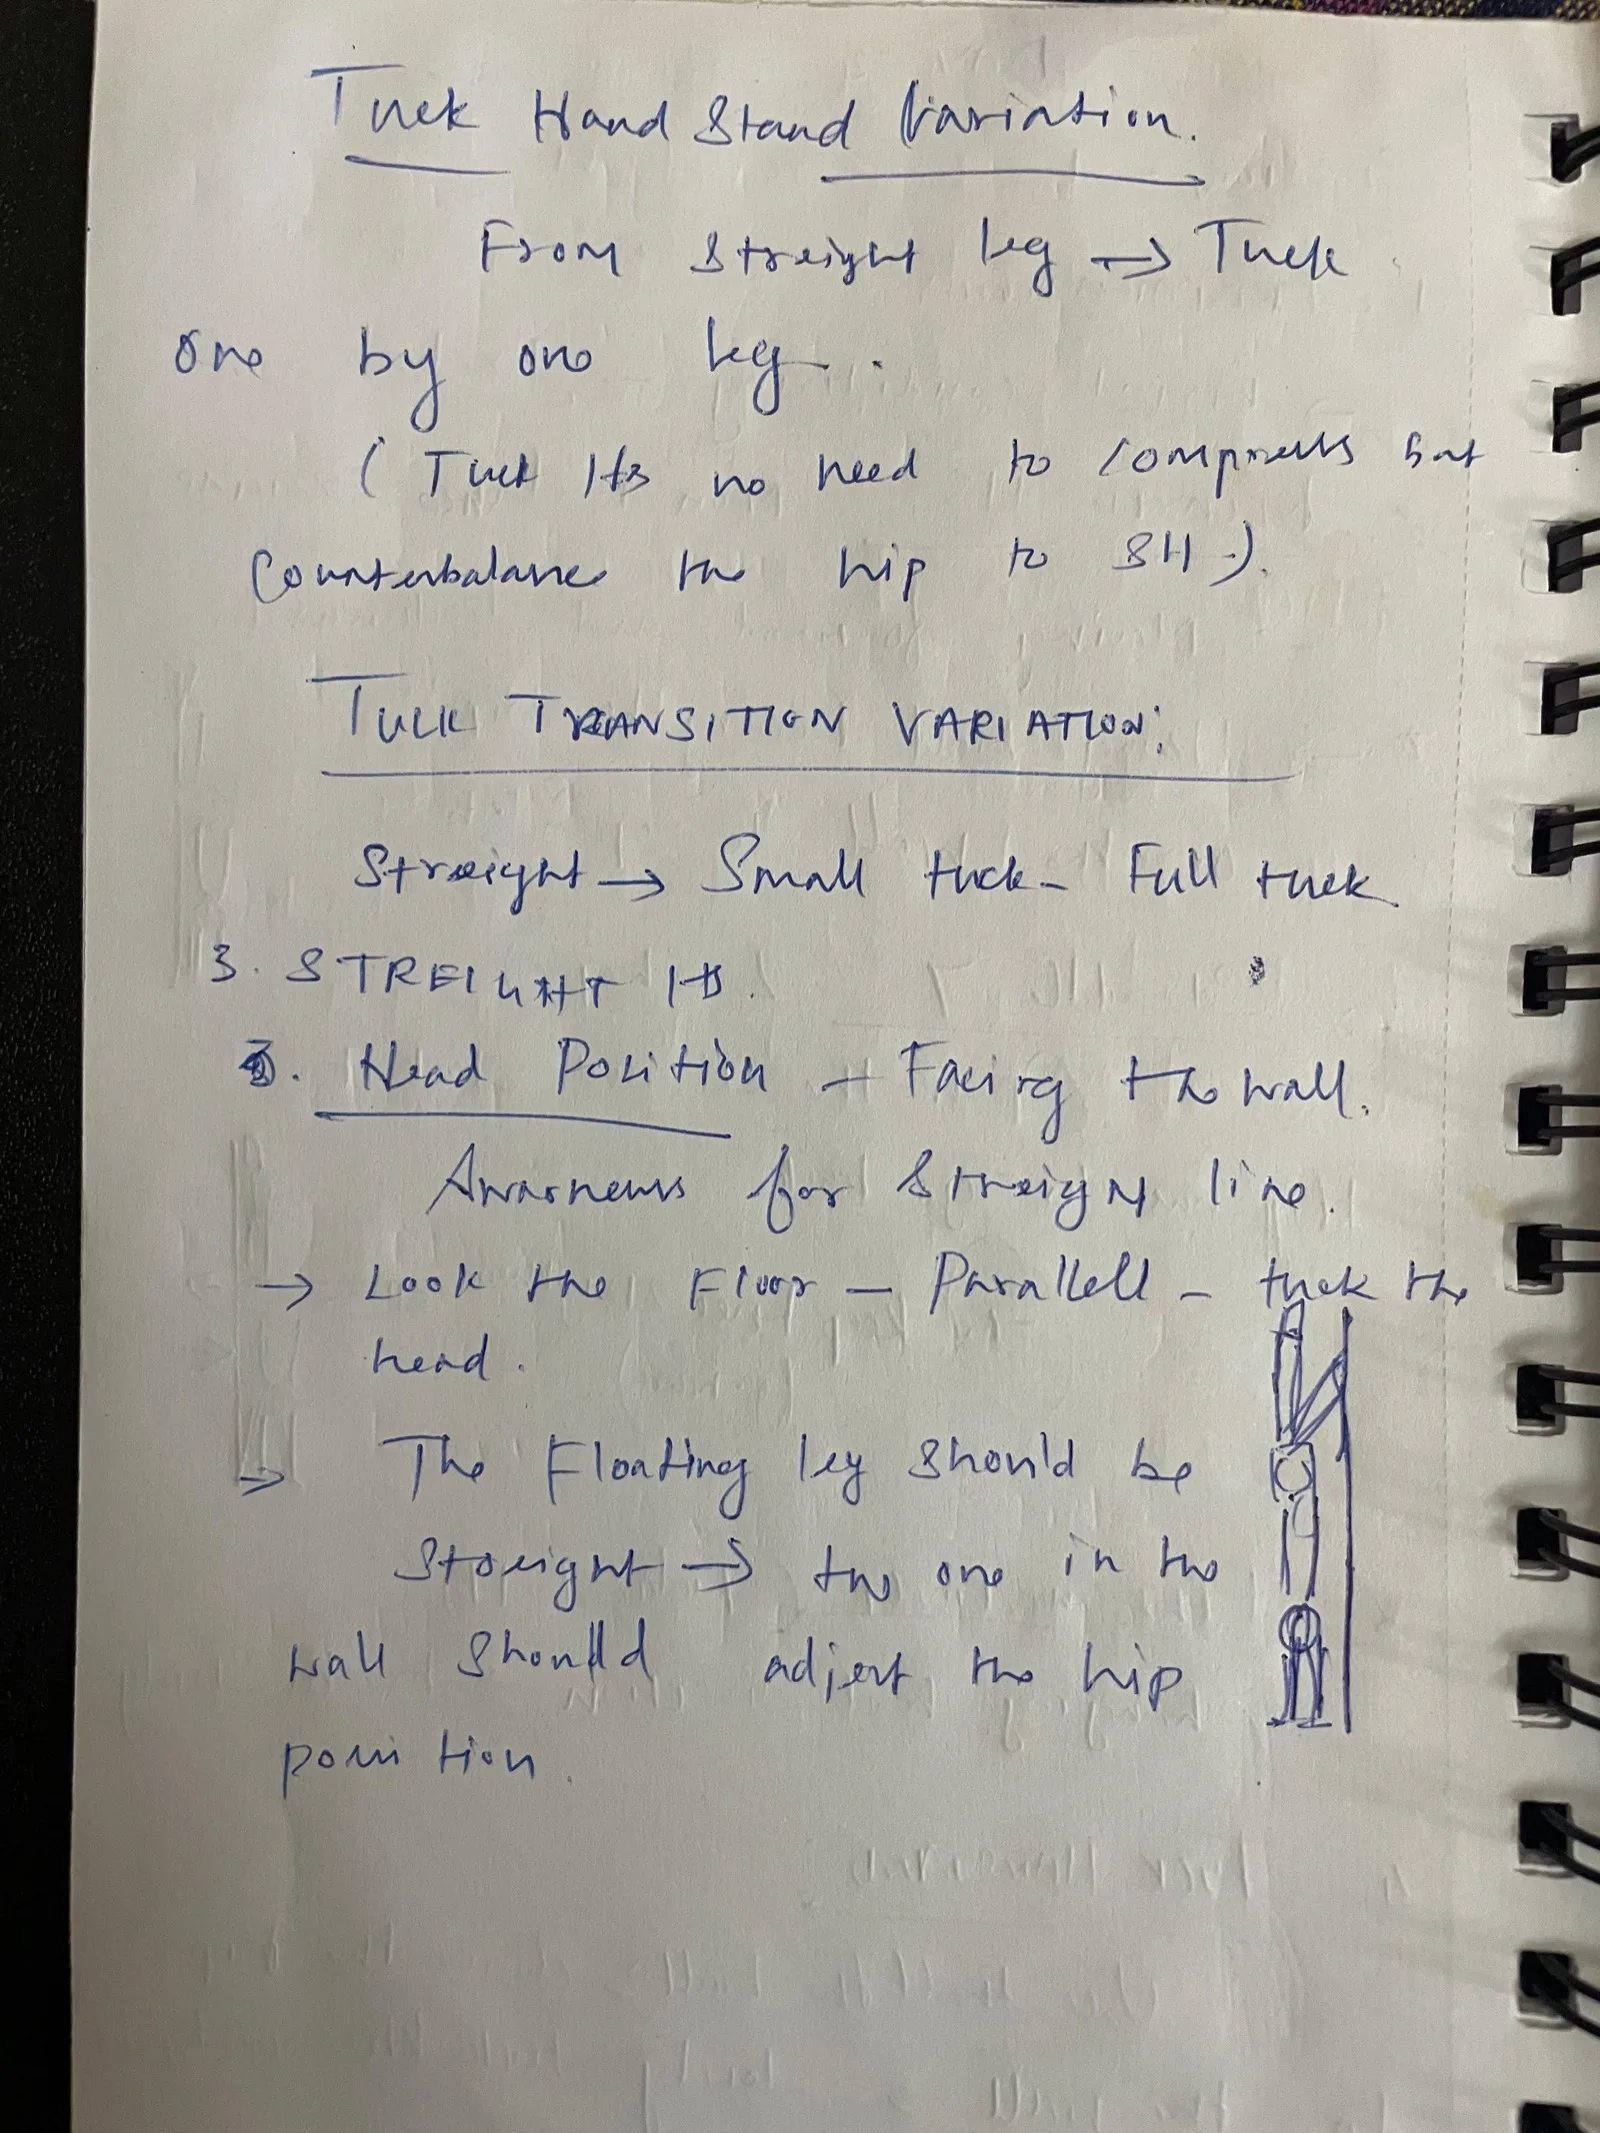 Tuck Hand Stand Variation.
From Streight leg → Tuck
one by one leg.
(Tuck HS no need to compress but
Counterbalance the hip to SH.).
TUCK TRANSITION VARIATION:
Streight → Small tuck - Full tuck
3. STREIGHT HS.
3. Head Position - Facing the wall.
Awarness for Streight line.
→ Look the Floor - Parallell - tuck the
head.
→ The Floating leg should be
Streight → the one in the
wall should adjest the hip
position.